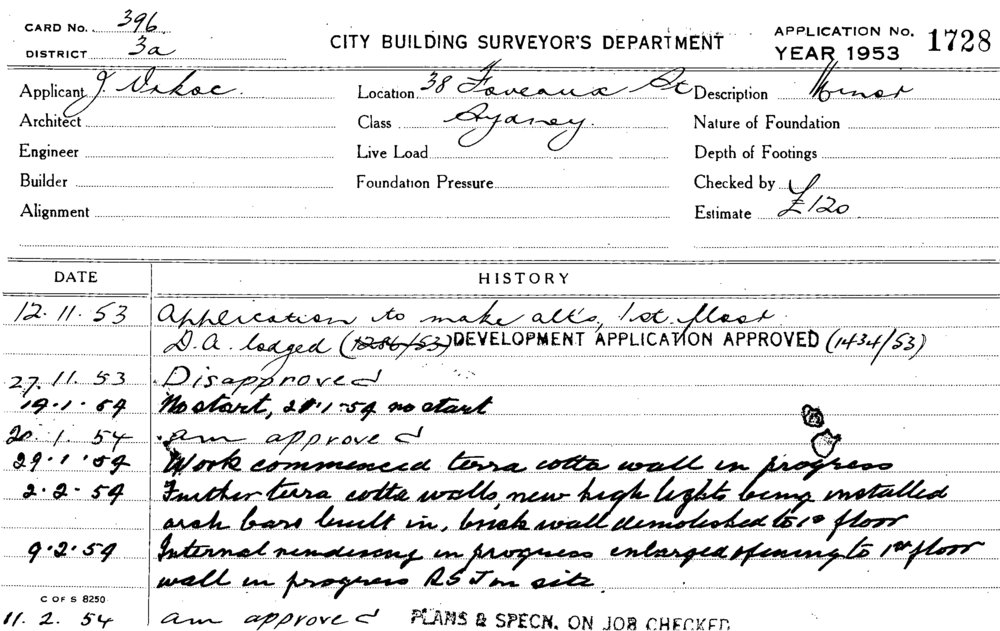 CARD No. 396
DISTRICT 3a
CITY BUILDING SURVEYOR'S DEPARTMENT
APPLICATION No. 1728
YEAR 1953
Applicant J.
Location 38 Foveaux St
Description Minor
Architect
Class Sydney.
Nature of Foundation
Engineer
Live Load
Depth of Footings
Builder
Foundation Pressure
Checked by
Alignment
Estimate £120
DATE HISTORY
12.11.53 Application to make alts, 1st. floor.
D.A. lodged (1286/53) DEVELOPMENT APPLICATION APPROVED (1434/53)
27.11.53 Disapproved
19.1.54 No start, 21.1.54 no start
20.1.54 am approved
29.1.54 Work commenced terra cotta wall in progress
2.2.54 Further terra cotta walls, new high lights being installed
arch bars built in, brick wall demolished to 1st floor
9.2.54 Internal rendering in progress enlarged opening to 1st floor
wall in progress RSJ on site
C OF S 8250
11.2.54 am approved PLANS & SPECN. ON JOB CHECKED